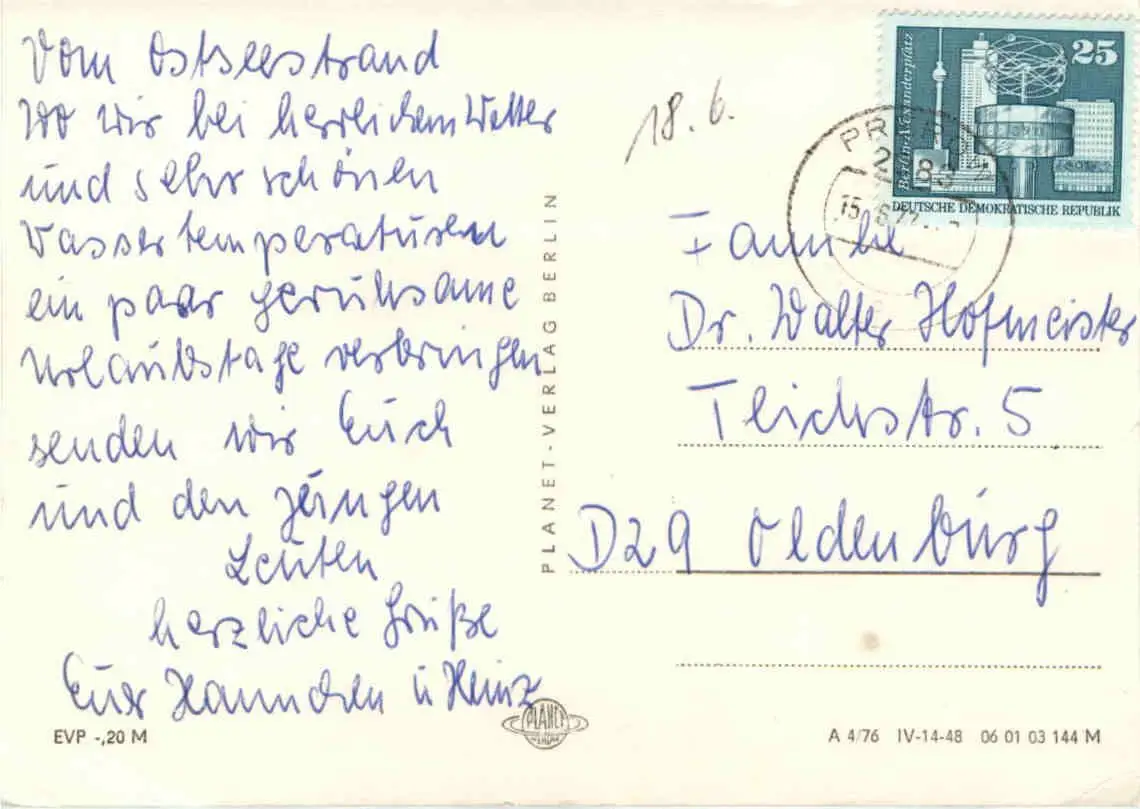 Vom Ostseestrand
wo wir bei herrlichem Wetter
und sehr schönen
Wassertemperaturen
ein paar geruhsame
Urlaubstage verbringen
senden wir Euch
und den jüngen
Leuten
herzliche Grüße
Euer Hannchen u Heinz
EVP -,20 M
PLANET-VERLAG BERLIN
PLANET
VERLAG
18.6.
Berlin-Alexanderplatz
25
DEUTSCHE DEMOKRATISCHE REPUBLIK
Familie
Dr. Walter Hofmeister
Teichstr. 5
D29 Oldenburg
A 4/76 IV-14-48 06 01 03 144 M